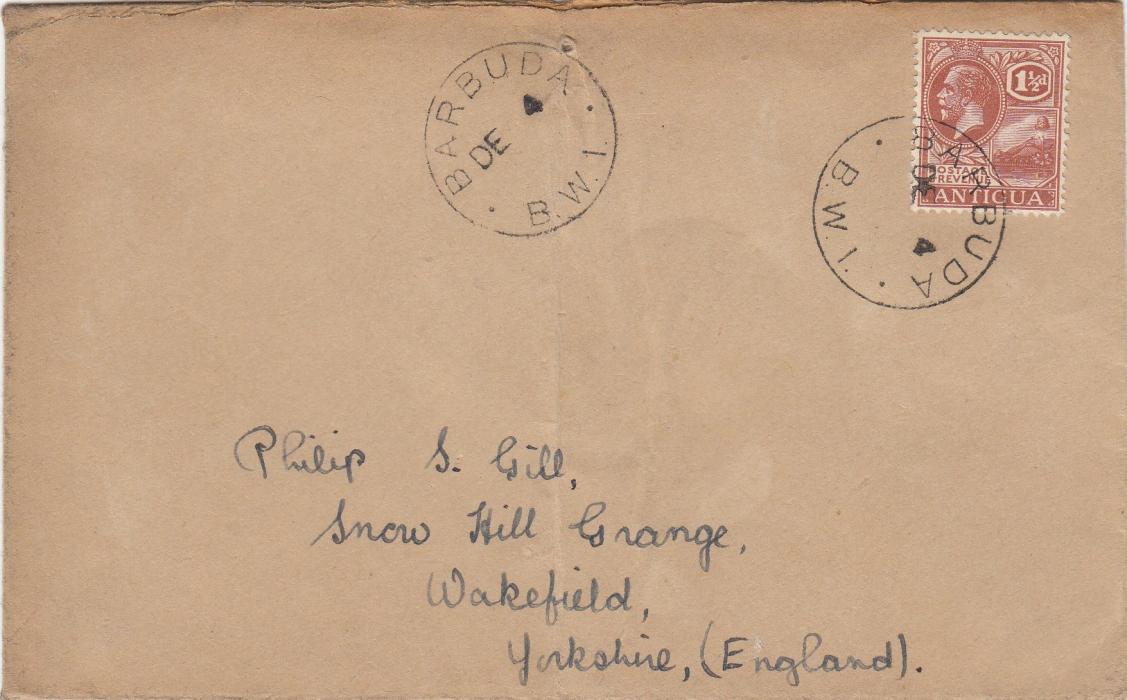 BARBUDA
DE 4
B.W.I.
1½d
POSTAGE
& REVENUE
ANTIGUA
BARBUDA
DE 4
B.W.I.
Philip S. Gill,
Snow Hill Grange,
Wakefield,
Yorkshire, (England).